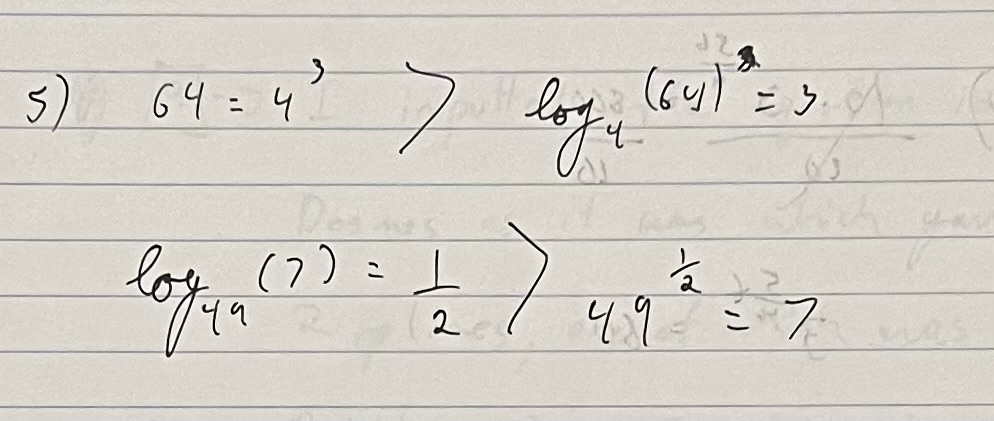 5) 64 = 4³ > log₄(64) = 3
log₄₉(7) = 1/2 > 49^(1/2) = 7